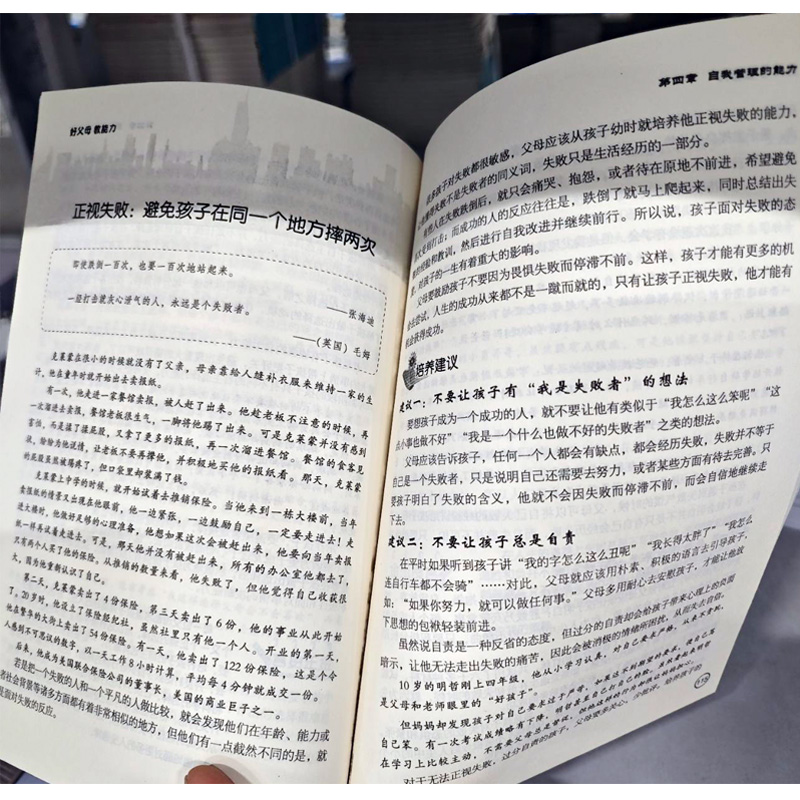 好父母 教能力
正视失败：避免孩子在同一个地方摔两次
即使跌倒一百次，也要一百次地站起来。
——张海迪
一经打击就灰心泄气的人，永远是个失败者。
——(英国) 毛姆
克莱蒙在很小的时候就没有了父亲，母亲靠给人缝补衣服来维持一家的生
计。他在童年时就开始出去卖报纸。
有一次，他走进一家餐馆卖报，被人赶了出来。他趁老板不注意的时候，再
一次溜进餐馆。餐馆老板很生气，一脚将他踢了出来。可是克莱蒙并没有感到
害怕，而是揉了揉屁股，又拿了更多的报纸，再一次溜进餐馆。餐馆的食客见
状，纷纷为他说情，让老板不要再撵他，并积极地买他的报纸看。那天，克莱蒙
的屁股虽然被踢疼了，但口袋里却装满了钱。
克莱蒙上中学的时候，就开始试着去推销保险。当他来到一栋大楼前，当年
卖报纸的情景又出现在他眼前，他一边紧张，一边鼓励自己，一定要走进去！走
进大楼时，他做好足够的心理准备，他想如果这次会被赶出来，他要向当年卖报
纸一样再试着走进去。可是，那天他并没有被赶出来，所有的办公室他都去了，
只有两个人买了他的保险。从推销的数量来看，他失败了，但他觉得自己收获很
大，因为他重新认识了自己。
第二天，克莱蒙卖出了4份保险，第三天卖出了6份，他的事业从此开始
了。20岁时，他设立了保险经纪社，虽然社里只有他一个人。开业的第一天，
他在繁华的大街上卖出了54份保险。有一天，他卖出了122份保险，这是个令
人感到不可思议的数字，以一天工作8小时计算，平均每4分钟就成交一份。
后来，他成为美国联合保险公司的董事长，美国的商业巨子之一。
若是把一个失败的人和一个平凡的人做比较，就会发现他们在年龄、能力或
者社会背景等诸多方面都有着非常相似的地方，但他们有一点截然不同的是，就
是面对失败的反应。
第四章 自我管理的能力
很多孩子对失败都很敏感，父母应该从孩子幼时就培养他正视失败的能力，
失败不是失败者的同义词，失败只是生活经历的一部分。
有些人在失败跌倒后，就只会痛哭、抱怨，或者待在原地不前进，希望避免
打击；而成功的人的反应往往是，跌倒了就马上爬起来，同时总结出失
败的经验和教训，然后进行自我改进并继续前行。所以说，孩子面对失败的态
度，对孩子的一生有着重大的影响。
父母要鼓励孩子不要因为畏惧失败而停滞不前。这样，孩子才能有更多的机
会去尝试，人生的成功从来都不是一蹴而就的，只有让孩子正视失败，他才能有
机会获得成功。
培养建议
建议一：不要让孩子有“我是失败者”的想法
要想孩子成为一个成功的人，就不要让他有类似于“我怎么这么笨呢”“这
点小事也做不好”“我是一个什么也做不好的失败者”之类的想法。
父母应该告诉孩子，任何一个人都会有缺点，都会经历失败，失败并不等于
自己是一个失败者，只是说明自己还需要去努力，或者某些方面有待去完善。只
要孩子明白了失败的含义，他就不会因失败而停滞不前，而会自信地继续走
下去。
建议二：不要让孩子总是自责
在平时如果听到孩子讲“我的字怎么这么丑呢”“我长得太胖了”“我怎么
连自行车都不会骑”……对此，父母就应该用朴素、积极的语言去引导孩子，
如：“如果你努力，就可以做任何事。”父母多用耐心去安慰孩子，才能让他放
下思想的包袱轻装前进。
虽然说自责是一种反省的态度，但过分的自责却会给孩子带来心理上的负面
暗示，让他无法走出失败的痛苦，因此会被消极的情绪所困扰，从而失去自信。
10岁的明哲刚上四年级，他从小学习认真，对自己要求严格，从来不贪玩，
是父母和老师眼里的“好孩子”。
但妈妈却发现孩子对自己要求过于严苛，
自己笨。有一次考试成绩略有下降，
在学习上比较主动，不需要父母总是督促，
对于无法正视失败，过分自责的孩子，父母要多关心，少批评，给孩子的